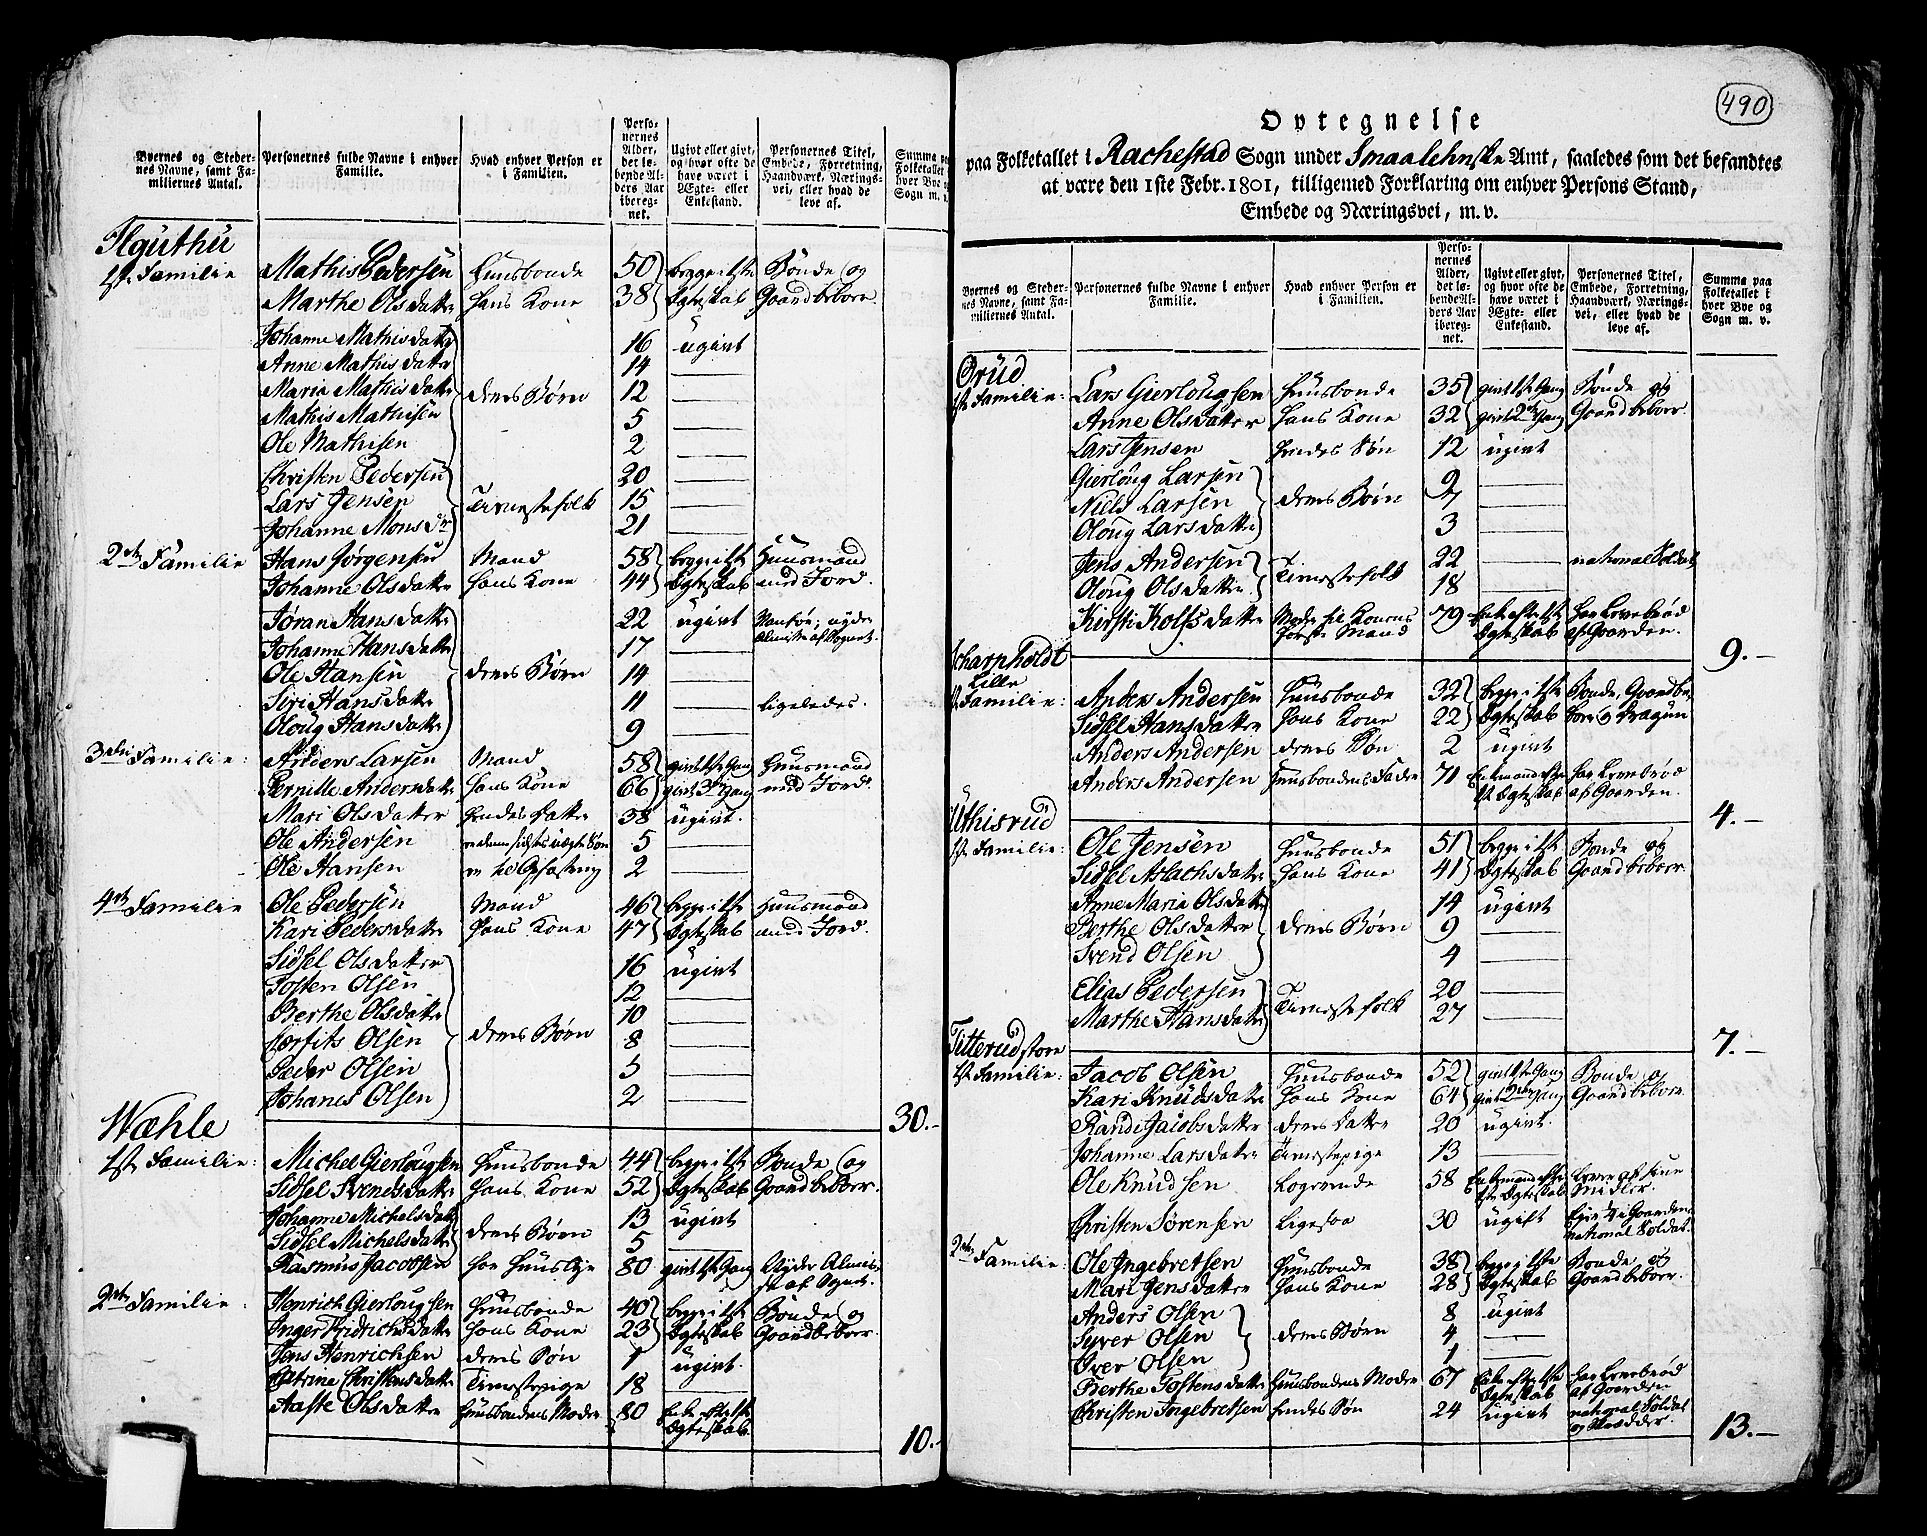 Byernes og Steder-nes Navne, samt Fa-miliernes Antal. Personernes fulde Navne i enhver Familie. Hvad enhver Person er i Familien. Perso-nernes Alder, det lø-bende Al-ders Aar ibereg-net. Ugivt eller givt, og hvor ofte de have været i Ægte- eller Enkestand. Personernes Titel, Embede, Forretning, Haandværk, Nærings-vei, eller hvad de leve af. Summa paa Folketallet i hver Bye og Sogn m. v.
1ste Familie Mathis Pedersen Huusbonde 50 begge i 1ste Bonde og
Marthe Olsdatter Hans Kone 38 Ægteskab Gaardbeboer.
Johanne Mathisdatter 16 ugivt
Anne Mathisdatter 14
Maria Mathisdatter deres Børn 12
Mathis Mathisen 5
Ole Mathisen 2
Christen Pedersen 20
Lars Jensen Tienestefolk 15
Johanne Monsdr 21
2den Familie Hans Jørgensen Mand 58 begge i 1ste Huusmand
Johanne Olsdatter Hans Kone 44 Ægteskab med Jord.
Jøran Hansdatter 22 ugivt Vanfør, nyder Almisse af Sognet.
Johanne Hansdatter 17
Ole Hansen deres Børn 14
Siri Hansdatter 11 ligeledes.
Oloug Hansdatter 9
3die Familie: Anders Larsen Mand 58 givt 1ste Gang Huusmand
Pernille Andersdatter Hans Kone 66 givt 3die Gang med Jord.
Mari Olsdatter Hendes Datter 38 ugivt.
Ole Andersen en dennes sidstes uægte Søn 5
Ole Hansen en til Opfostring 2
4de Familie Ole Pedersen Mand 46 begge i 1ste Huusmand
Kari Pedersdatter Hans Kone 47 Ægteskab med Jord.
Sidsel Olsdatter 16 ugivt
Tosten Olsen 12
Berthe Olsdatter 10
Olsen deres Børn 8
Peder Olsen 5
Johanes Olsen 2
30.
Wæhle
1ste Familie: Michel Gierlougsen Huusbonde 44 begge i 1ste Bonde og
Sidsel Svendsdatter Hans Kone 52 Ægteskab Gaardbeboer.
Johanne Michelsdatter deres Børn 13 ugivt
Sidsel Michelsdatter 5
Rasmus Jacobsen 80 givt 1ste Gang Nyder Almisse af Sognet.
2den Familie: Henrich Gierlougsen Huusbonde 40 begge i 1ste Bonde og
Inger Fridrichsdatter Hans Kone 23 Ægteskab Gaardbeboer.
Jens Henrichsen deres Søn 1 ugivt.
Petrine Christensdatter Tienestepige 18
Aaste Olsdatter Huusbondens Moder 80 Enke efter 1ste Ægteskab.
10.
490
Optegnelse
paa Folketallet i Rachestad Sogn under Smaalehnske Amt, saaledes som det befandtes
at være den 1ste Febr. 1801, tilligemed Forklaring om enhver Persons Stand,
Embede og Næringsvei, m. v.
Byernes og Steder-nes Navne, samt Fa-miliernes Antal. Personernes fulde Navne i enhver Familie. Hvad enhver Person er i Familien. Perso-nernes Alder, det lø-bende Al-ders Aar ibereg-net. Ugivt eller givt, og hvor ofte de have været i Ægte- eller Enkestand. Personernes Titel, Embede, Forretning, Haandværk, Nærings-vei, eller hvad de leve af. Summa paa Folketallet i hver Bye og Sogn m. v.
Grüd
1ste Familie: Lars Gierlougsen Huusbonde 35 givt 1ste Gang Bonde og
Anne Olsdatter Hans Kone 32 givt 2den Gang Gaardbeboer.
Lars Jensen Hendes Søn 12 ugivt
Gierloug Larsen 9
Niels Larsen deres Børn 7
Oloug Larsdatter 3
Jens Andersen Tienestefolk 22 national Soldat
Oloug Olsdatter 18
Kirsti Rolfsdatter Moder til Konens første Mand 79 Enke efter 1ste Ægteskab har Levebrød af Gaarden.
9.
Scharpholdt Lille
1ste Familie: Anders Andersen Huusbonde 32 begge i 1ste Bonde, Gaardbe-
Sidsel Hansdatter Hans Kone 22 Ægteskab boer og Dragun
Anders Andersen deres Søn 2 ugivt
Anders Andersen Huusbondens Fader 71 Enkemand efter 1ste Ægteskab har Levebrød af Gaarden.
4.
Uthisrud
1ste Familie: Ole Jensen Huusbonde 51 begge i 1ste Bonde og
Sidsel Aslachsdatter Hans Kone 41 Ægteskab Gaardbeboer.
Anne Maria Olsdatter 14 ugivt
Berthe Olsdatter deres Børn 9
Svend Olsen 4
Elias Pedersen Tienestefolk 20
Marthe Hansdatter 27
7.
Titterud store
1ste Familie: Jacob Olsen Huusbonde 52 givt 1ste Gang Bonde og
Kari Knudsdatter Hans Kone 64 givt 2den Gang Gaardbeboer.
Randi Jacobsdatter deres Datter 20 ugivt.
Johanne Larsdatter Tienestepige 13
Ole Knudsen Logerende 58 Enkemand efter 1ste Ægteskab Lever af sine Midler.
Christen Sørensen Ligesaa 30 ugift national Soldat.
2den Familie: Ole Ingebretsen Huusbonde 38 begge i 1ste Bonde og
Mari Jensdatter Hans Kone 28 Ægteskab Gaardbeboer.
Anders Olsen 8 ugivt
Syver Olsen deres Børn 4
Iver Olsen 1
Berthe Tostensdatter Huusbondens Moder 67 Enke efter 1ste Ægteskab har Levebrød af Gaarden
Christen Ingebretsen Hendes Søn 24 ugivt national Soldat og Skrædder.
13.